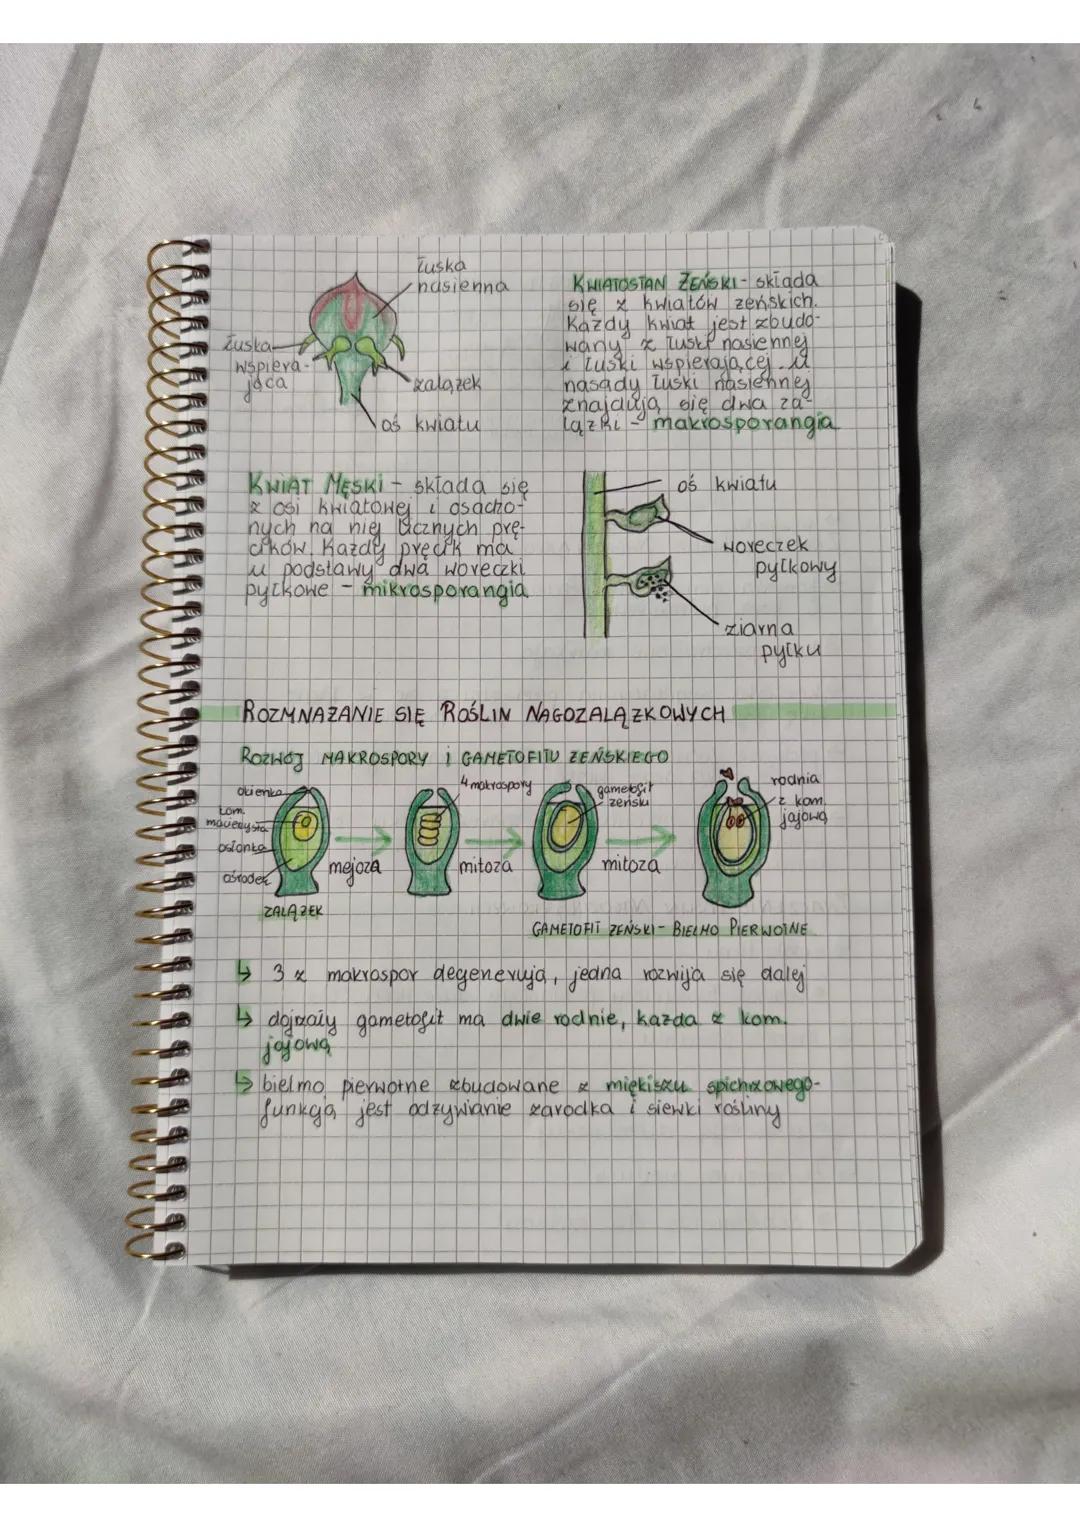 łuska
nasienna
łuska
wspiera-
jąca
zalążek
oś kwiatu
KWIATOSTAN ŻEŃSKI - składa
się z kwiatów żeńskich.
Każdy kwiat jest zbudo-
wany z łuski nasiennej
i łuski wspierającej. U
nasady łuski nasiennej
znajdują się dwa za-
lążki - makrosporangia
KWIAT MĘSKI - składa się
z osi kwiatowej i osadzo-
nych na niej licznych prę-
cików. Każdy pręcik ma
u podstawy dwa woreczki
pyłkowe - mikrosporangia
oś kwiatu
woreczek
pyłkowy
ziarna
pyłku
ROZMNAŻANIE SIĘ ROŚLIN NAGOZALĄŻKOWYCH
ROZWÓJ MAKROSPORY i GAMETOFITU ŻEŃSKIEGO
okienko
kom.
macierzysta
osłonka
ośrodek
ZALĄŻEK
mejoza
4 makrospory
mitoza
gametofit
żeński
mitoza
rodnia
z kom.
jajową
GAMETOFIT ŻEŃSKI - BIELMO PIERWOTNE
↳ 3 z makrospor degenerują, jedna rozwija się dalej
↳ dojrzały gametofit ma dwie rodnie, każda z kom.
jajową
↳ bielmo pierwotne zbudowane z miękiszu spichrzowego-
funkcją jest odżywianie zarodka i siewki rośliny